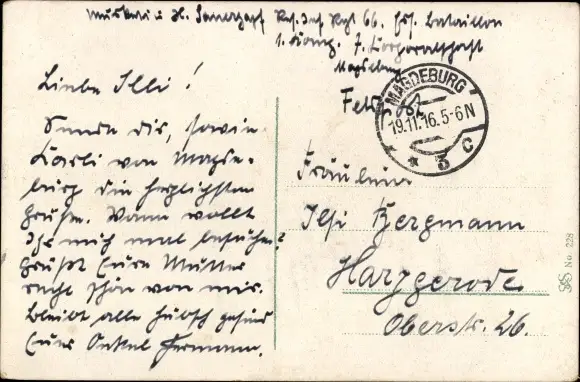 Musketier H. Sauerzapf Res. Inf. Regt 66. Ers. Bataillon
1. Komp. 7. Korporalschaft
Magdeburg
Feldpost
MAGDEBURG
19.11.16. 5-6 N
* * 3 c
Liebe Illi!
Sende dir, sowie
Karli von Magde-
burg die herzlichsten
Grüße. Wann wollt
Ihr mich mal besuchen?
Grüßt Eure Mutter
recht schön von mir.
Bleibt alle hübsch gesund
Euer Onkel Hermann.
Fräulein
Ilse Bergmann
Harzgerode
Oberstr. 26.
No. 228